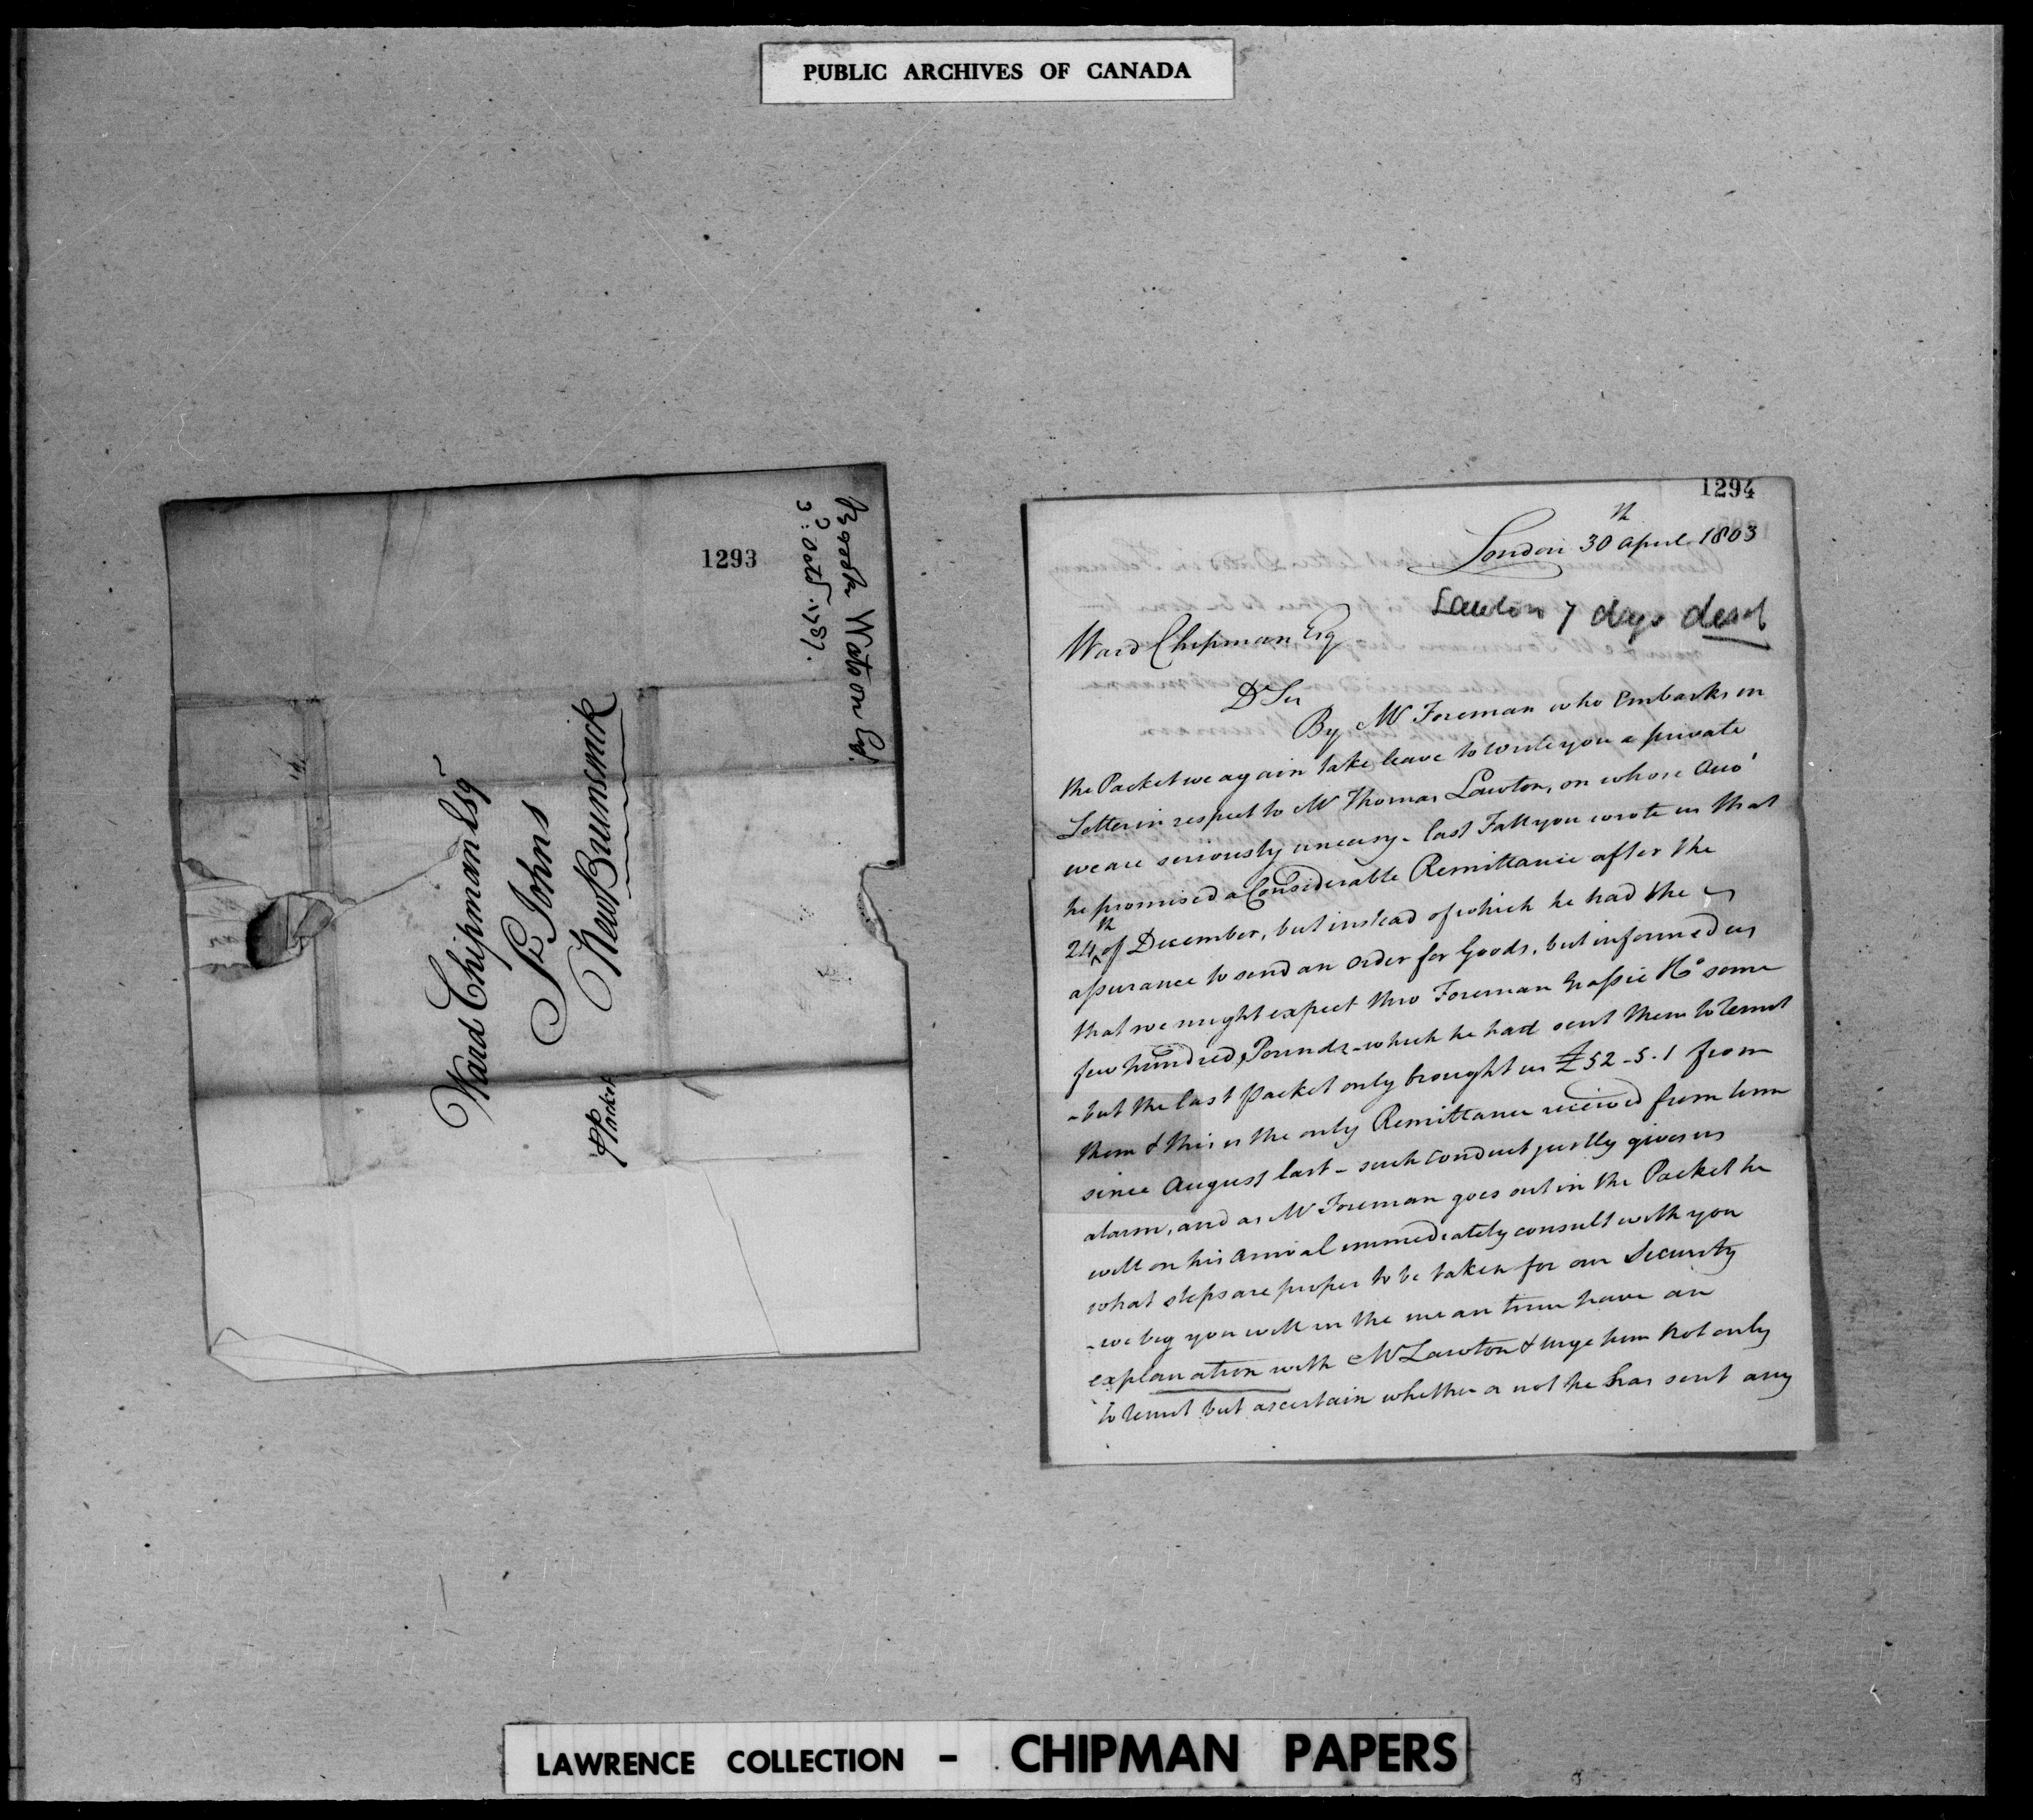 PUBLIC ARCHIVES OF CANADA
1293
Brook Watson Esq.
3: Octr. 1787.
Ward Chipman Esqr
St Johns
New Brunswick
P Packet
1294
London 30th April 1803
Lawton 7 days
Ward Chipman Esq
Dr Sir
By Mr Foreman who Embarks in
the Packet we again take leave to write you a private
Letter in respect to Mr Thomas Lawton, on whose Acco'
we are seriously uneasy - last Fall you wrote us that
he promised a Considerable Remittance after the
24th of December, but instead of which he had the
assurance to send an order for Goods, but informed us
that we might expect thro Foreman Grassie & Co some
few hundred Pounds - which he had sent them to remit
- but the last Packet only brought us £52-5-1 from
them & this is the only Remittance received from him
since August last - such conduct justly gives us
alarm, and as Mr Foreman goes out in the Packet he
will on his Arrival immediately consult with you
what steps are proper to be taken for our Security
- we beg you will in the mean time have an
explanation with Mr Lawton & urge him not only
to remit but ascertain whether or not he has sent any
LAWRENCE COLLECTION - CHIPMAN PAPERS